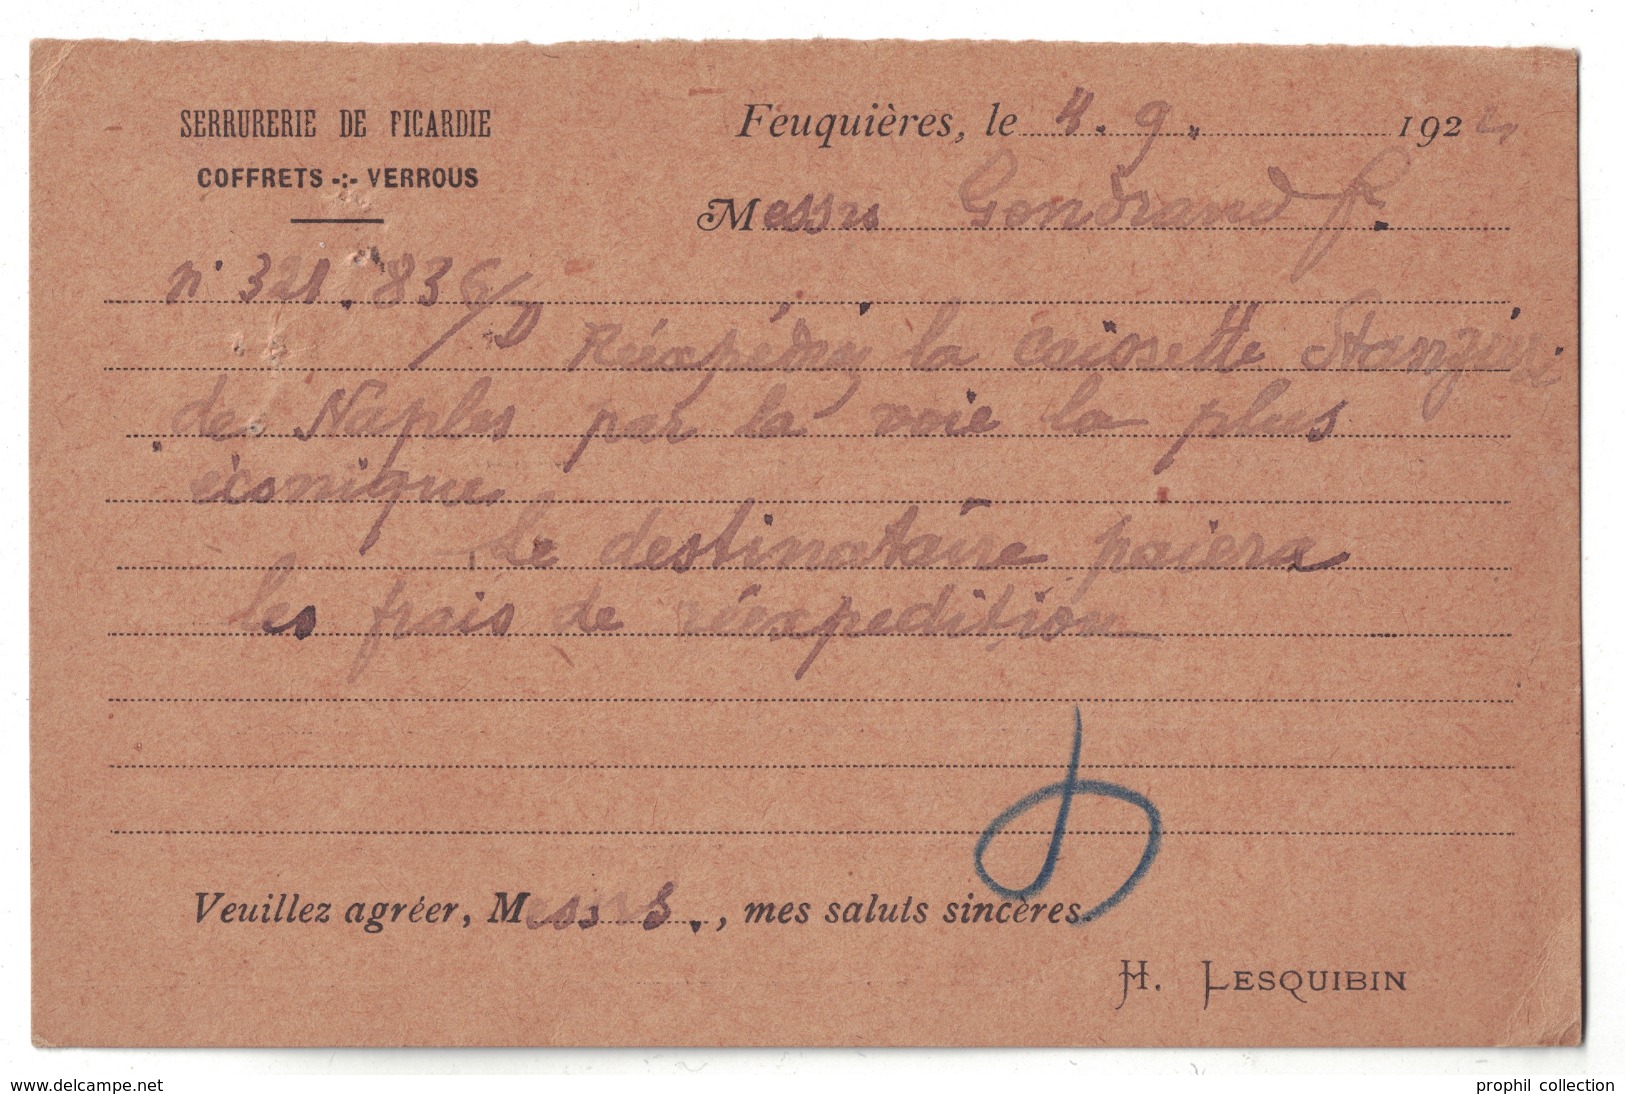 SERRURERIE DE PICARDIE
COFFRETS -:- VERROUS
Feuquières, le 4. 9. 192
Messrs Gondrand F.
n° 321.836/D
Réexpédiez la caissette
de Naples par la voie la plus
éconique
Le destinataire paiera
les frais de réexpedition
Veuillez agréer, Messrs., mes saluts sincères.
H. LESQUIBIN
www.delcampe.net
prophil collection